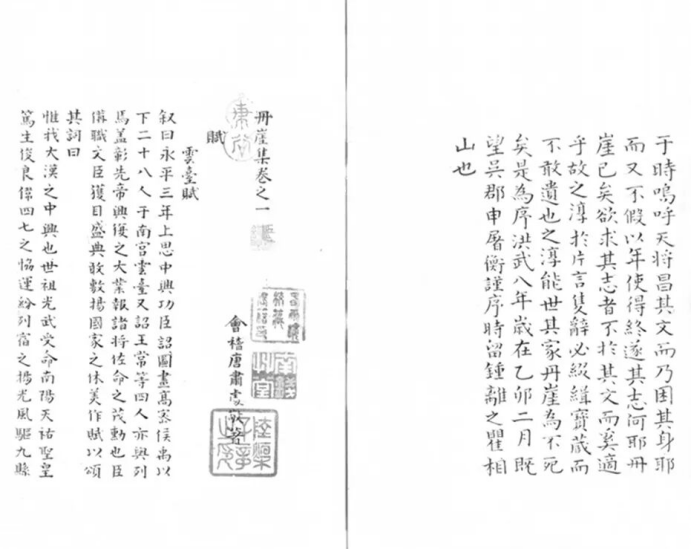 于時嗚呼天將昌其文而乃困其身耶
而又不假以年使得終遂其志何耶丹
崖已矣欲求其志者不於其文而奚適
乎故之淳於片言隻辭必綴緝寶蔵而
不敢遺也之淳能世其家丹崖為不死
矣是為序洪武八年歲在乙卯二月既
望吳郡申屠衡謹序時留鍾離之瞿相
山也
丹崖集卷之一
會稽唐肅處敬著
賦
雲臺賦
叙曰永平三年上思中興功臣詔圖畫髙宻侯禹以
下二十八人于南宫雲臺又詔王常等四人亦與列
焉盖彰先帝興復之大業報諸将佐命之茂勳也臣
備職文臣獲目盛典敢敷揚國家之休美作賦以頌
其詞曰
惟我大漢之中興也世祖光武受命南陽天祐聖皇
篤生俊良偉四七之恊運紛列宿之揚光風驅九縣